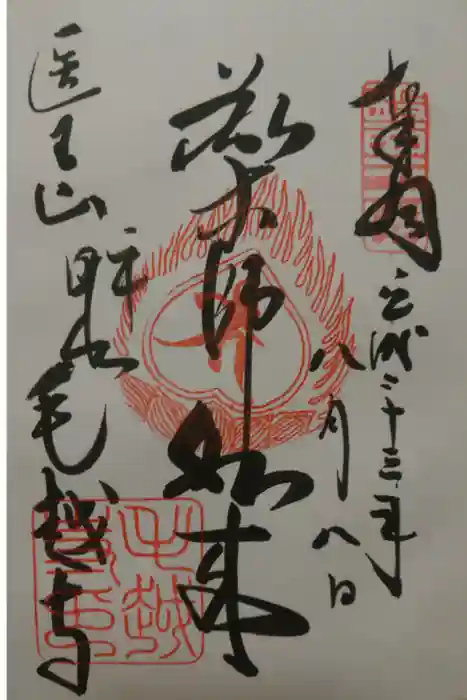 奉拝
平成二十三年
八月八日
薬師如来
医王山
毛越寺